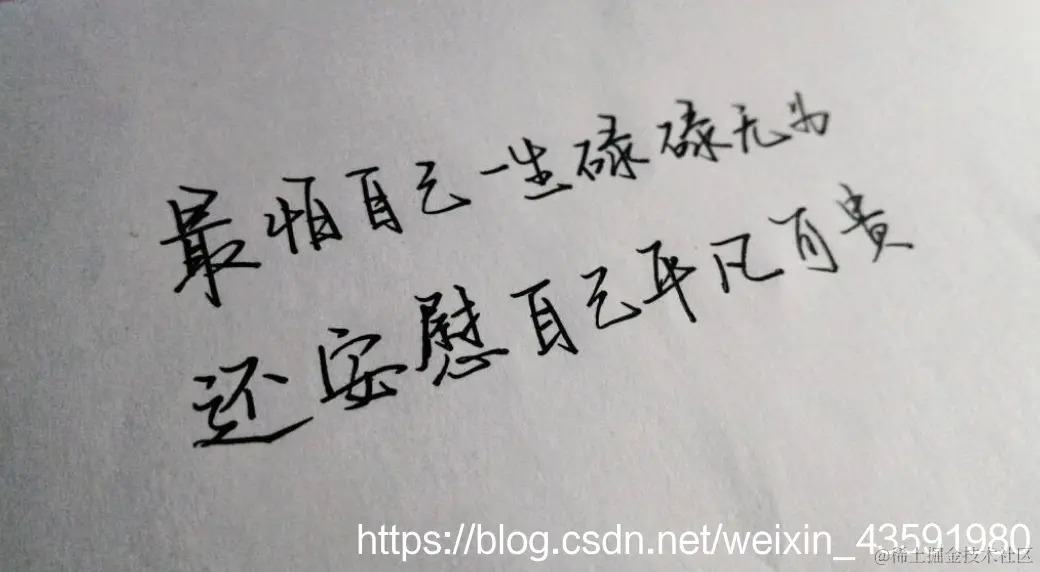 最怕自己一生碌碌无为
还安慰自己平凡可贵
https://blog.csdn.net/weixin_43591980
@稀土掘金技术社区